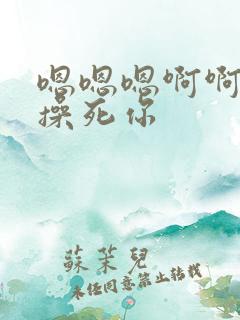 嗯嗯嗯啊啊
操死你
蘇茉兒
未经同意禁止转载